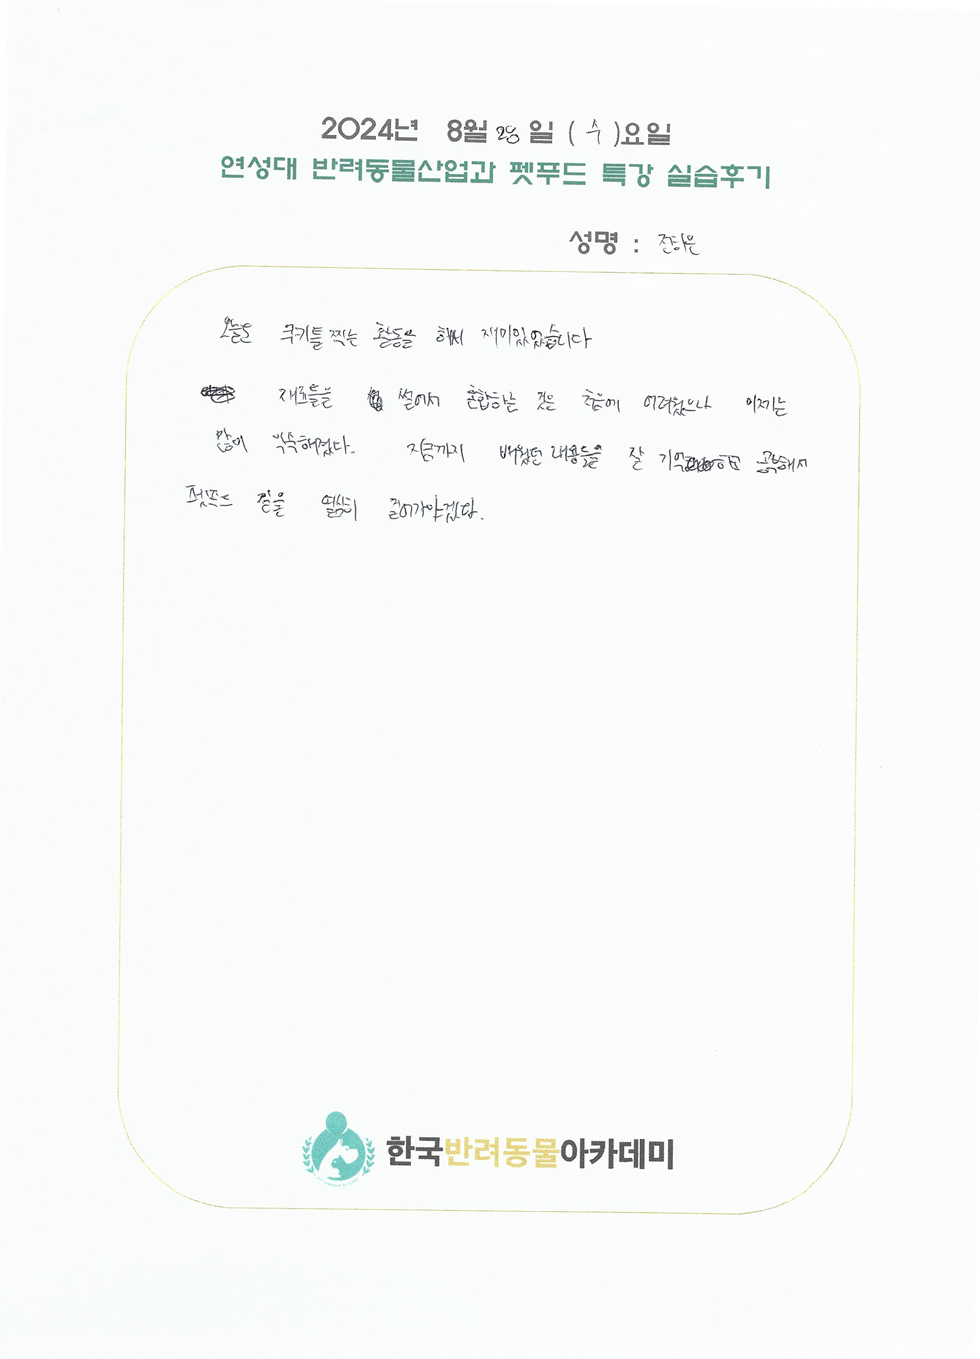 2024년 8월 28일 (수)요일
연성대 반려동물산업과 펫푸드 특강 실습후기
성명 : 전하은
오늘은 쿠키틀 찍는 활동을 해서 재미있었습니다
재료들을 썰어서 혼합하는 것은 처음에 어려웠으나 이제는
많이 익숙해졌다. 지금까지 배웠던 내용들을 잘 기억하고 공부해서
펫푸드 길을 열심히 걸어가야겠다.
한국반려동물아카데미